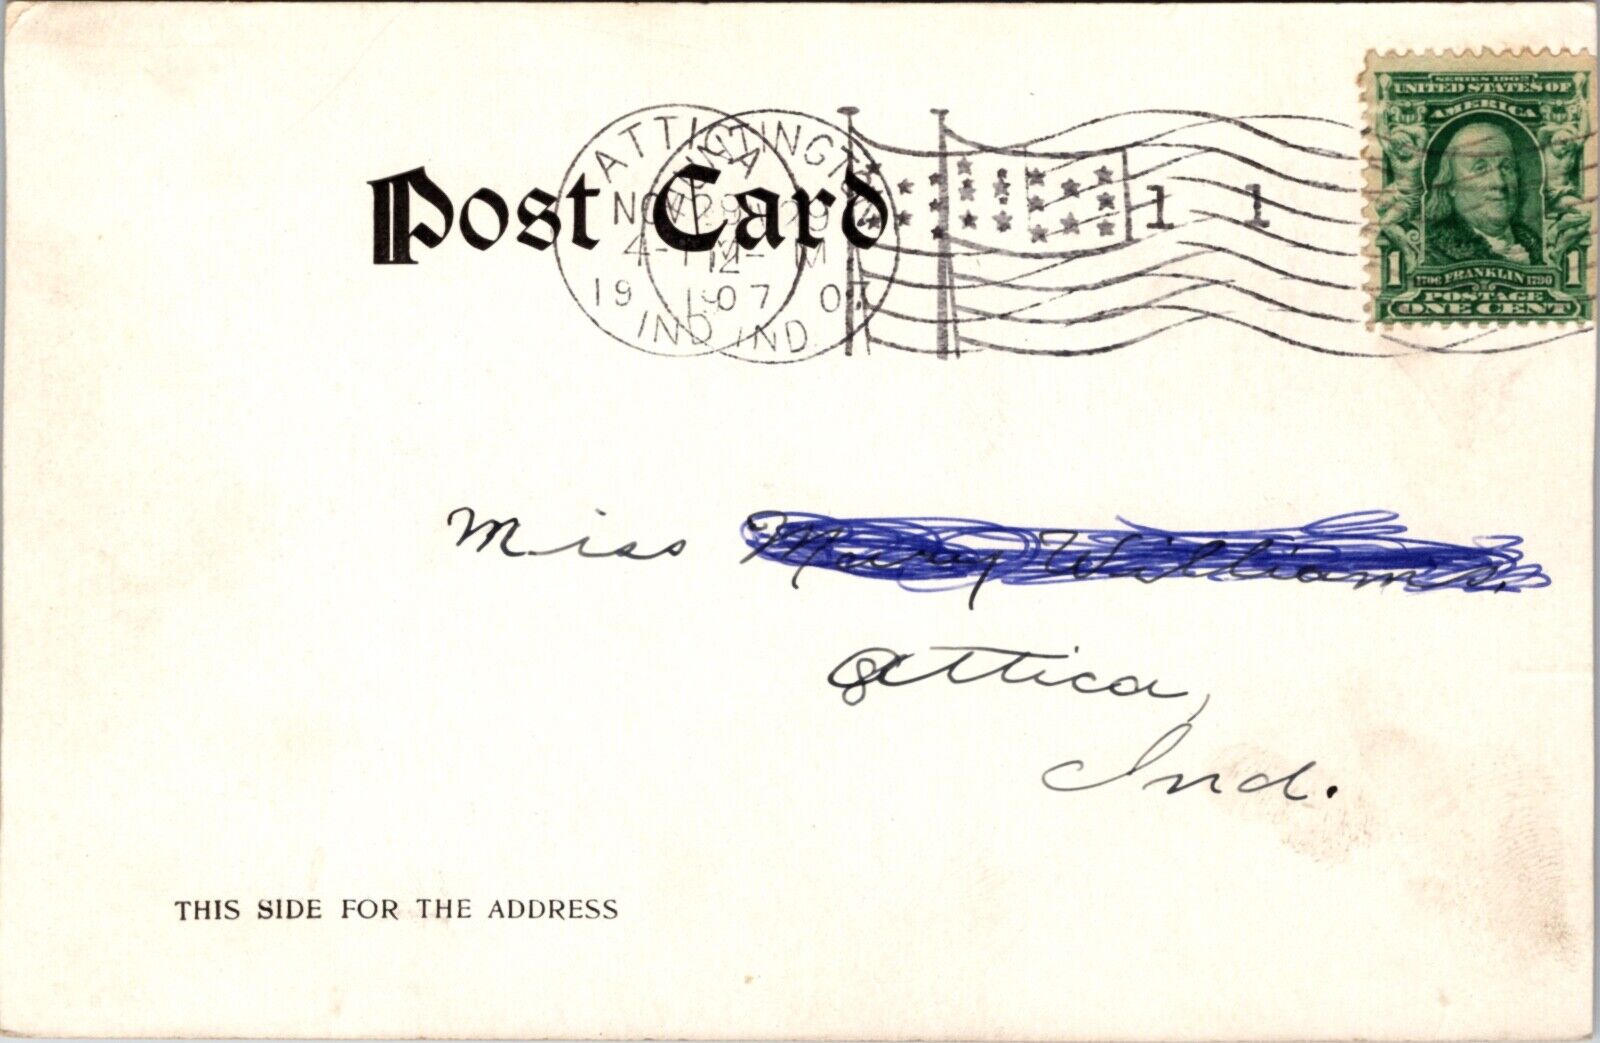 SERIES 1902
UNITED STATES OF
AMERICA
1 1706 FRANKLIN 1790 1
POSTAGE
ONE CENT
Post Card
ATTICA
NOV 29
4-PM
1907
IND
HUNTINGTON
NOV 29
12-M
1907
IND
1 1
Miss Mary Williams.
Attica,
Ind.
THIS SIDE FOR THE ADDRESS